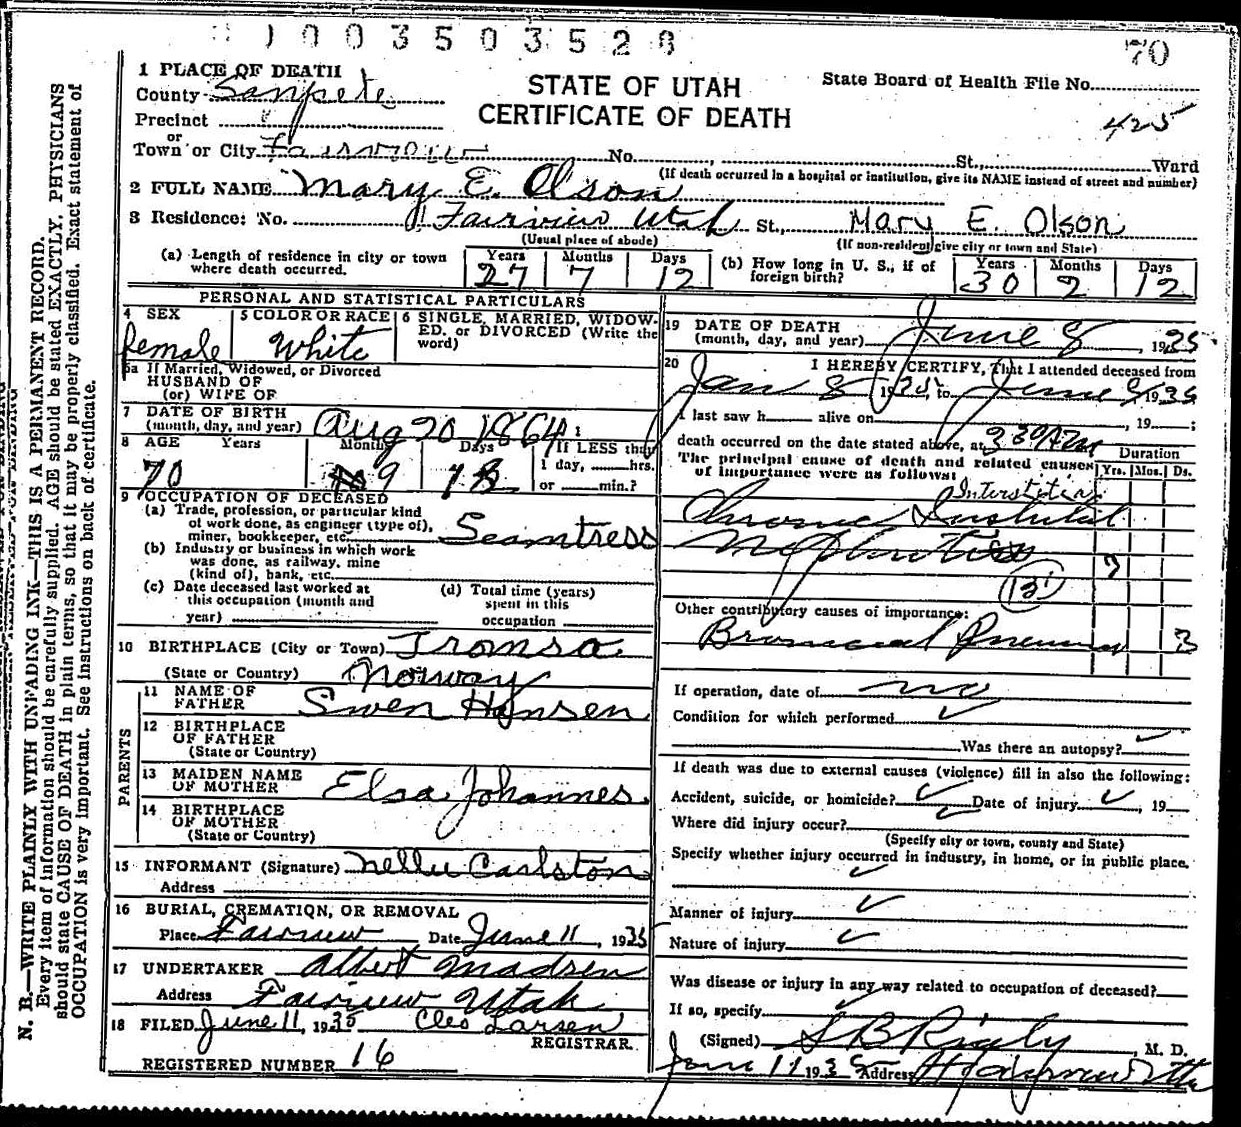 1003503528
70
1 PLACE OF DEATH
County Sanpete
STATE OF UTAH
CERTIFICATE OF DEATH
State Board of Health File No.
425
Precinct
or
Town or City Fairview No. , St., Ward
(If death occurred in a hospital or institution, give its NAME instead of street and number)
2 FULL NAME Mary E. Olson
3 Residence: No. Fairview Utah St., Mary E. Olson
(Usual place of abode) (If non-resident, give city or town and State)
(a) Length of residence in city or town where death occurred. Years 27 Months 7 Days 12 (b) How long in U. S., if of foreign birth? Years 30 Months 2 Days 12
PERSONAL AND STATISTICAL PARTICULARS
4 SEX female
5 COLOR OR RACE White
6 SINGLE, MARRIED, WIDOWED, or DIVORCED (Write the word)
5a If Married, Widowed, or Divorced
HUSBAND OF
(or) WIFE OF
7 DATE OF BIRTH
(month, day, and year) Aug 20 1864
8 AGE Years 70 Months 9 Days 18 If LESS than
1 day, hrs.
or min.?
9 OCCUPATION OF DECEASED
(a) Trade, profession, or particular kind
of work done, as engineer (type of),
miner, bookkeeper, etc. Seamtress
(b) Industry or business in which work
was done, as railway, mine
(kind of), bank, etc.
(c) Date deceased last worked at
this occupation (month and
year)
(d) Total time (years)
spent in this
occupation
10 BIRTHPLACE (City or Town) Tromso
(State or Country) Norway
PARENTS
11 NAME OF
FATHER Swen Hansen
12 BIRTHPLACE
OF FATHER
(State or Country)
13 MAIDEN NAME
OF MOTHER Elsa Johannes
14 BIRTHPLACE
OF MOTHER
(State or Country)
15 INFORMANT (Signature) Nellie Carlston
Address
16 BURIAL, CREMATION, OR REMOVAL
Place Fairview Date June 11, 1935
17 UNDERTAKER Albert Madsen
Address Fairview Utah
18 FILED June 11, 1935 Cleo Larsen
REGISTRAR.
REGISTERED NUMBER 16
19 DATE OF DEATH
(month, day, and year) June 8, 1935
20 I HEREBY CERTIFY, That I attended deceased from
Jan 8 1935, to June 8 1935
I last saw h alive on , 19 ;
death occurred on the date stated above, at 3 30 AM
Duration
The principal cause of death and related causes
of importance were as follows:
Yrs. Mos. Ds.
Interstitial
Chronic
Nephritis 7
131
Other contributory causes of importance:
Bronchial Pneumonia 3
If operation, date of no
Condition for which performed ✓
Was there an autopsy? ✓
If death was due to external causes (violence) fill in also the following:
Accident, suicide, or homicide? ✓ Date of injury ✓, 19
Where did injury occur? ✓
(Specify city or town, county and State)
Specify whether injury occurred in industry, in home, or in public place.
✓
Manner of injury ✓
Nature of injury ✓
Was disease or injury in any way related to occupation of deceased?
If so, specify ✓
(Signed) S B Rigby, M. D.
June 11 1935 Address Fairview Utah
N. B.—WRITE PLAINLY WITH UNFADING INK—THIS IS A PERMANENT RECORD.
Every item of information should be carefully supplied. AGE should be stated EXACTLY. PHYSICIANS
should state CAUSE OF DEATH in plain terms, so that it may be properly classified. Exact statement of
OCCUPATION is very important. See instructions on back of certificate.